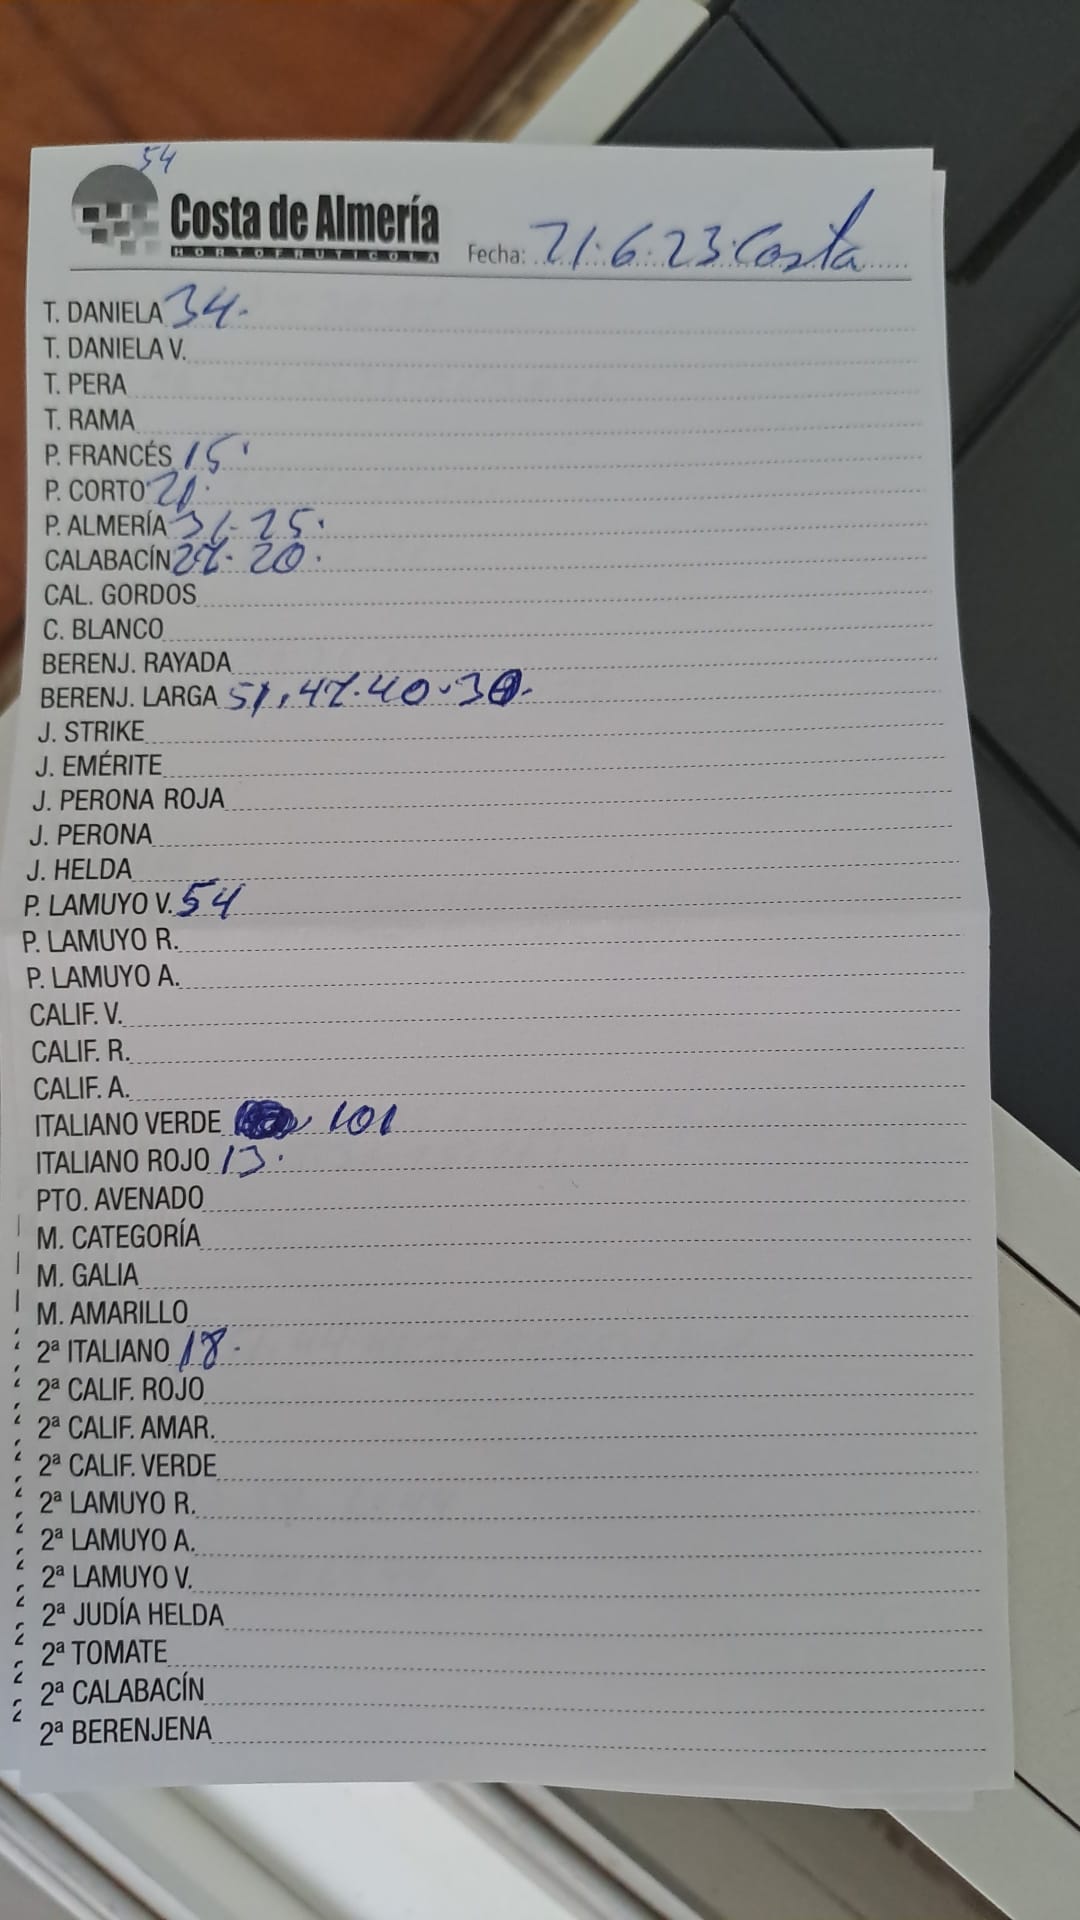 54
Costa de Almería
HORTOFRUTICOLA
Fecha: 21.6.23. Costa
T. DANIELA 34.
T. DANIELA V.
T. PERA
T. RAMA
P. FRANCÉS 15.
P. CORTO 21.
P. ALMERÍA 31. 25.
CALABACÍN 27. 20.
CAL. GORDOS
C. BLANCO
BERENJ. RAYADA
BERENJ. LARGA 51. 47. 40.
J. STRIKE
J. EMÉRITE
J. PERONA ROJA
J. PERONA
J. HELDA
P. LAMUYO V. 54
P. LAMUYO R.
P. LAMUYO A.
CALIF. V.
CALIF. R.
CALIF. A.
ITALIANO VERDE 101
ITALIANO ROJO 13.
PTO. AVENADO
M. CATEGORÍA
M. GALIA
M. AMARILLO
2ª ITALIANO 18.
2ª CALIF. ROJO
2ª CALIF. AMAR.
2ª CALIF. VERDE
2ª LAMUYO R.
2ª LAMUYO A.
2ª LAMUYO V.
2ª JUDÍA HELDA
2ª TOMATE
2ª CALABACÍN
2ª BERENJENA